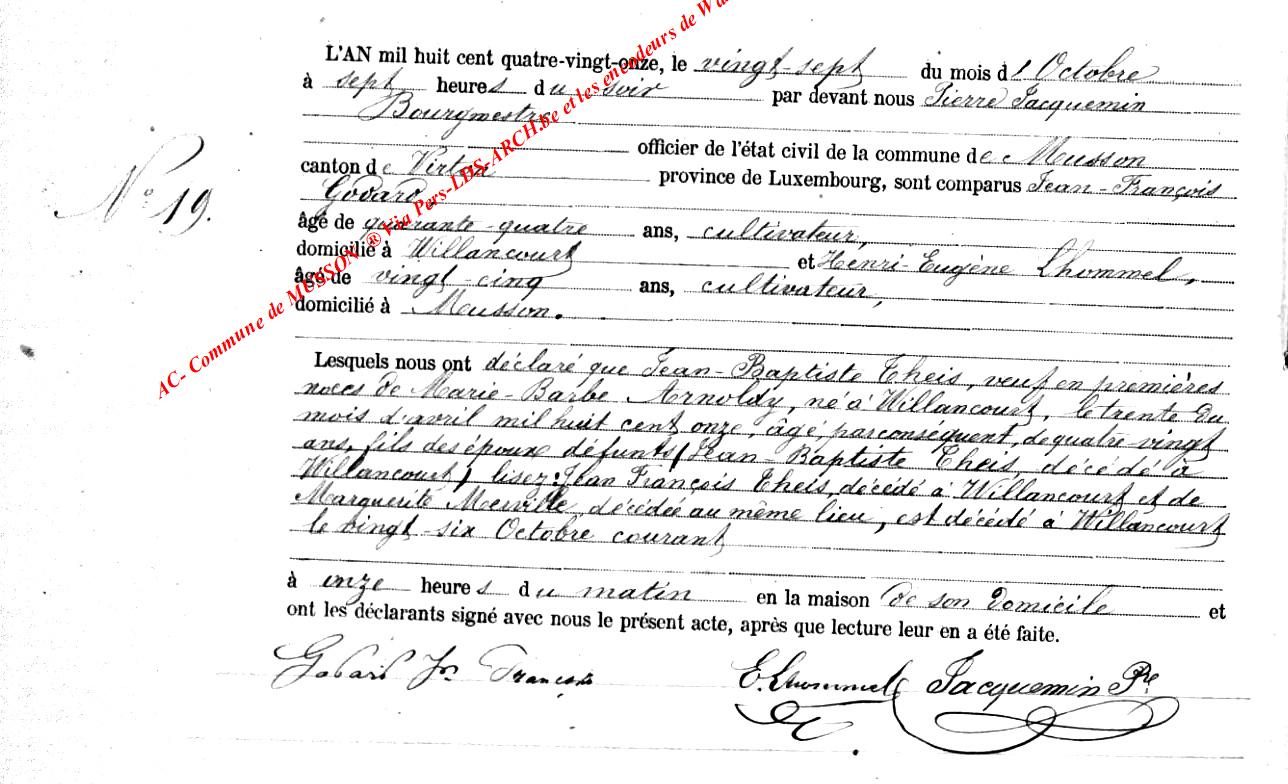 L'AN mil huit cent quatre-vingt-onze, le vingt-sept du mois d'Octobre
à sept heures du soir par devant nous Pierre Jacquemin
Bourgmestre
officier de l'état civil de la commune de Musson
canton de Virton province de Luxembourg, sont comparus Jean-François
Godard
âgé de quarante-quatre ans, cultivateur,
domicilié à Willancourt et Henri-Eugène Lhommel,
âgé de vingt-cinq ans, cultivateur,
domicilié à Musson.
N° 19.
Lesquels nous ont déclaré que Jean-Baptiste Theis, veuf en premières
noces de Marie-Barbe Arnoldy, né à Willancourt, le trente du
mois d'avril mil huit cent onze, âgé, parconséquent, de quatre-vingt
ans, fils des époux défunts (Jean-Baptiste Theis, décédé à
Willancourt) lisez: Jean François Theis, décédé à Willancourt et de
Marguerite Merville, décédée au même lieu, est décédé à Willancourt
le vingt-six Octobre courant
à onze heures du matin en la maison de son domicile et
ont les déclarants signé avec nous le présent acte, après que lecture leur en a été faite.
Godard Jn François E. Lhommel Jacquemin Pre
AC- Commune de MUSSON ® Via Pers-LDS-ARCH.be et les encodeurs de